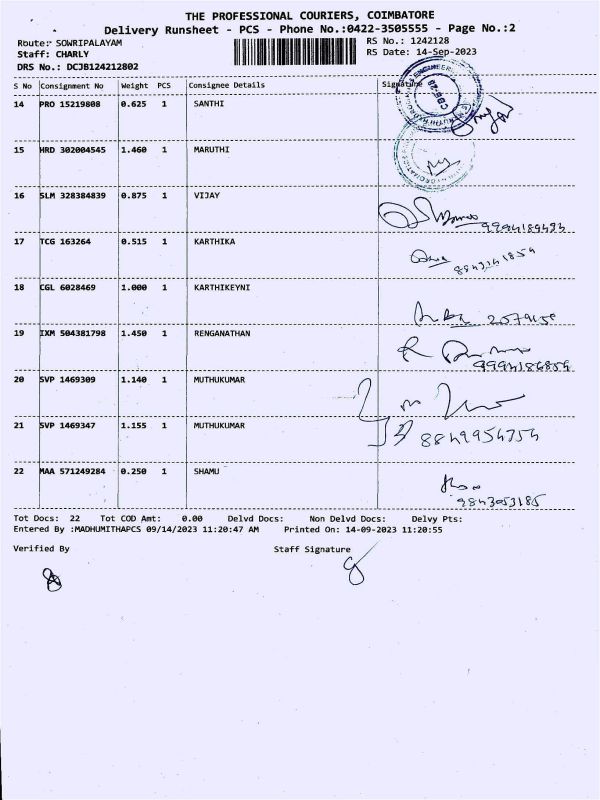 THE PROFESSIONAL COURIERS, COIMBATORE
Delivery Runsheet - PCS - Phone No.:0422-3505555 - Page No.:2
Route: SOWRIPALAYAM RS No.: 1242128
Staff: CHARLY RS Date: 14-Sep-2023
DRS No.: DCJB124212802
S No Consignment No Weight PCS Consignee Details Signature
14 PRO 15219808 0.625 1 SANTHI
15 HRD 302004545 1.460 1 MARUTHI
16 SLM 328384839 0.875 1 VIJAY
17 TCG 163264 0.515 1 KARTHIKA
18 CGL 6028469 1.000 1 KARTHIKEYNI
19 IXM 504381798 1.450 1 RENGANATHAN
20 SVP 1469309 1.140 1 MUTHUKUMAR
21 SVP 1469347 1.155 1 MUTHUKUMAR
22 MAA 571249284 0.250 1 SHAMU
9843053185
Tot Docs: 22 Tot COD Amt: 0.00 Delvd Docs: Non Delvd Docs: Delvy Pts:
Entered By :MADHUMITHAPCS 09/14/2023 11:20:47 AM Printed On: 14-09-2023 11:20:55
Verified By Staff Signature